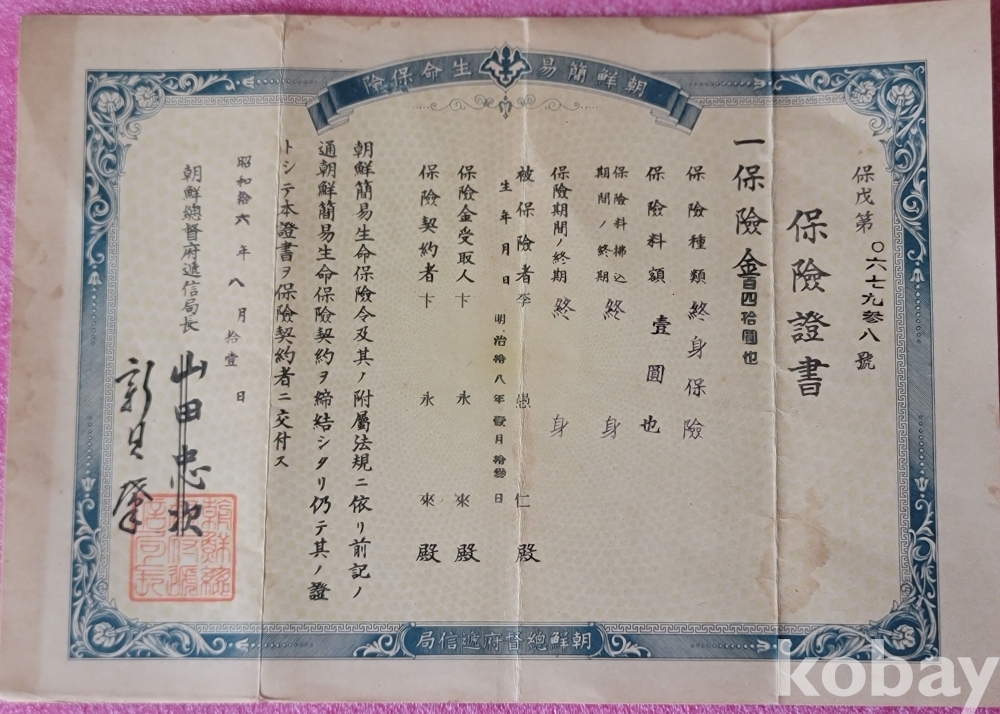 朝鮮簡易生命保險
保戊第〇六七九参八號
保險證書
一保險金百四拾圓也
保險種類終身保險
保險料額壹圓也
保險料拂込期間ノ終期終身
保險期間ノ終期終身
被保險者李愚仁殿
生年月日明治拾八年壹月拾參日
保險金受取人卞永來殿
保險契約者卞永來殿
朝鮮簡易生命保險令及其ノ附屬法規ニ依リ前記ノ
通朝鮮簡易生命保險契約ヲ締結シタリ仍テ其ノ證
トシテ本證書ヲ保險契約者ニ交付ス
昭和拾六年八月拾壹日
朝鮮總督府遞信局長
山田忠次
新貝肇
朝鮮總督府遞信局
kobay